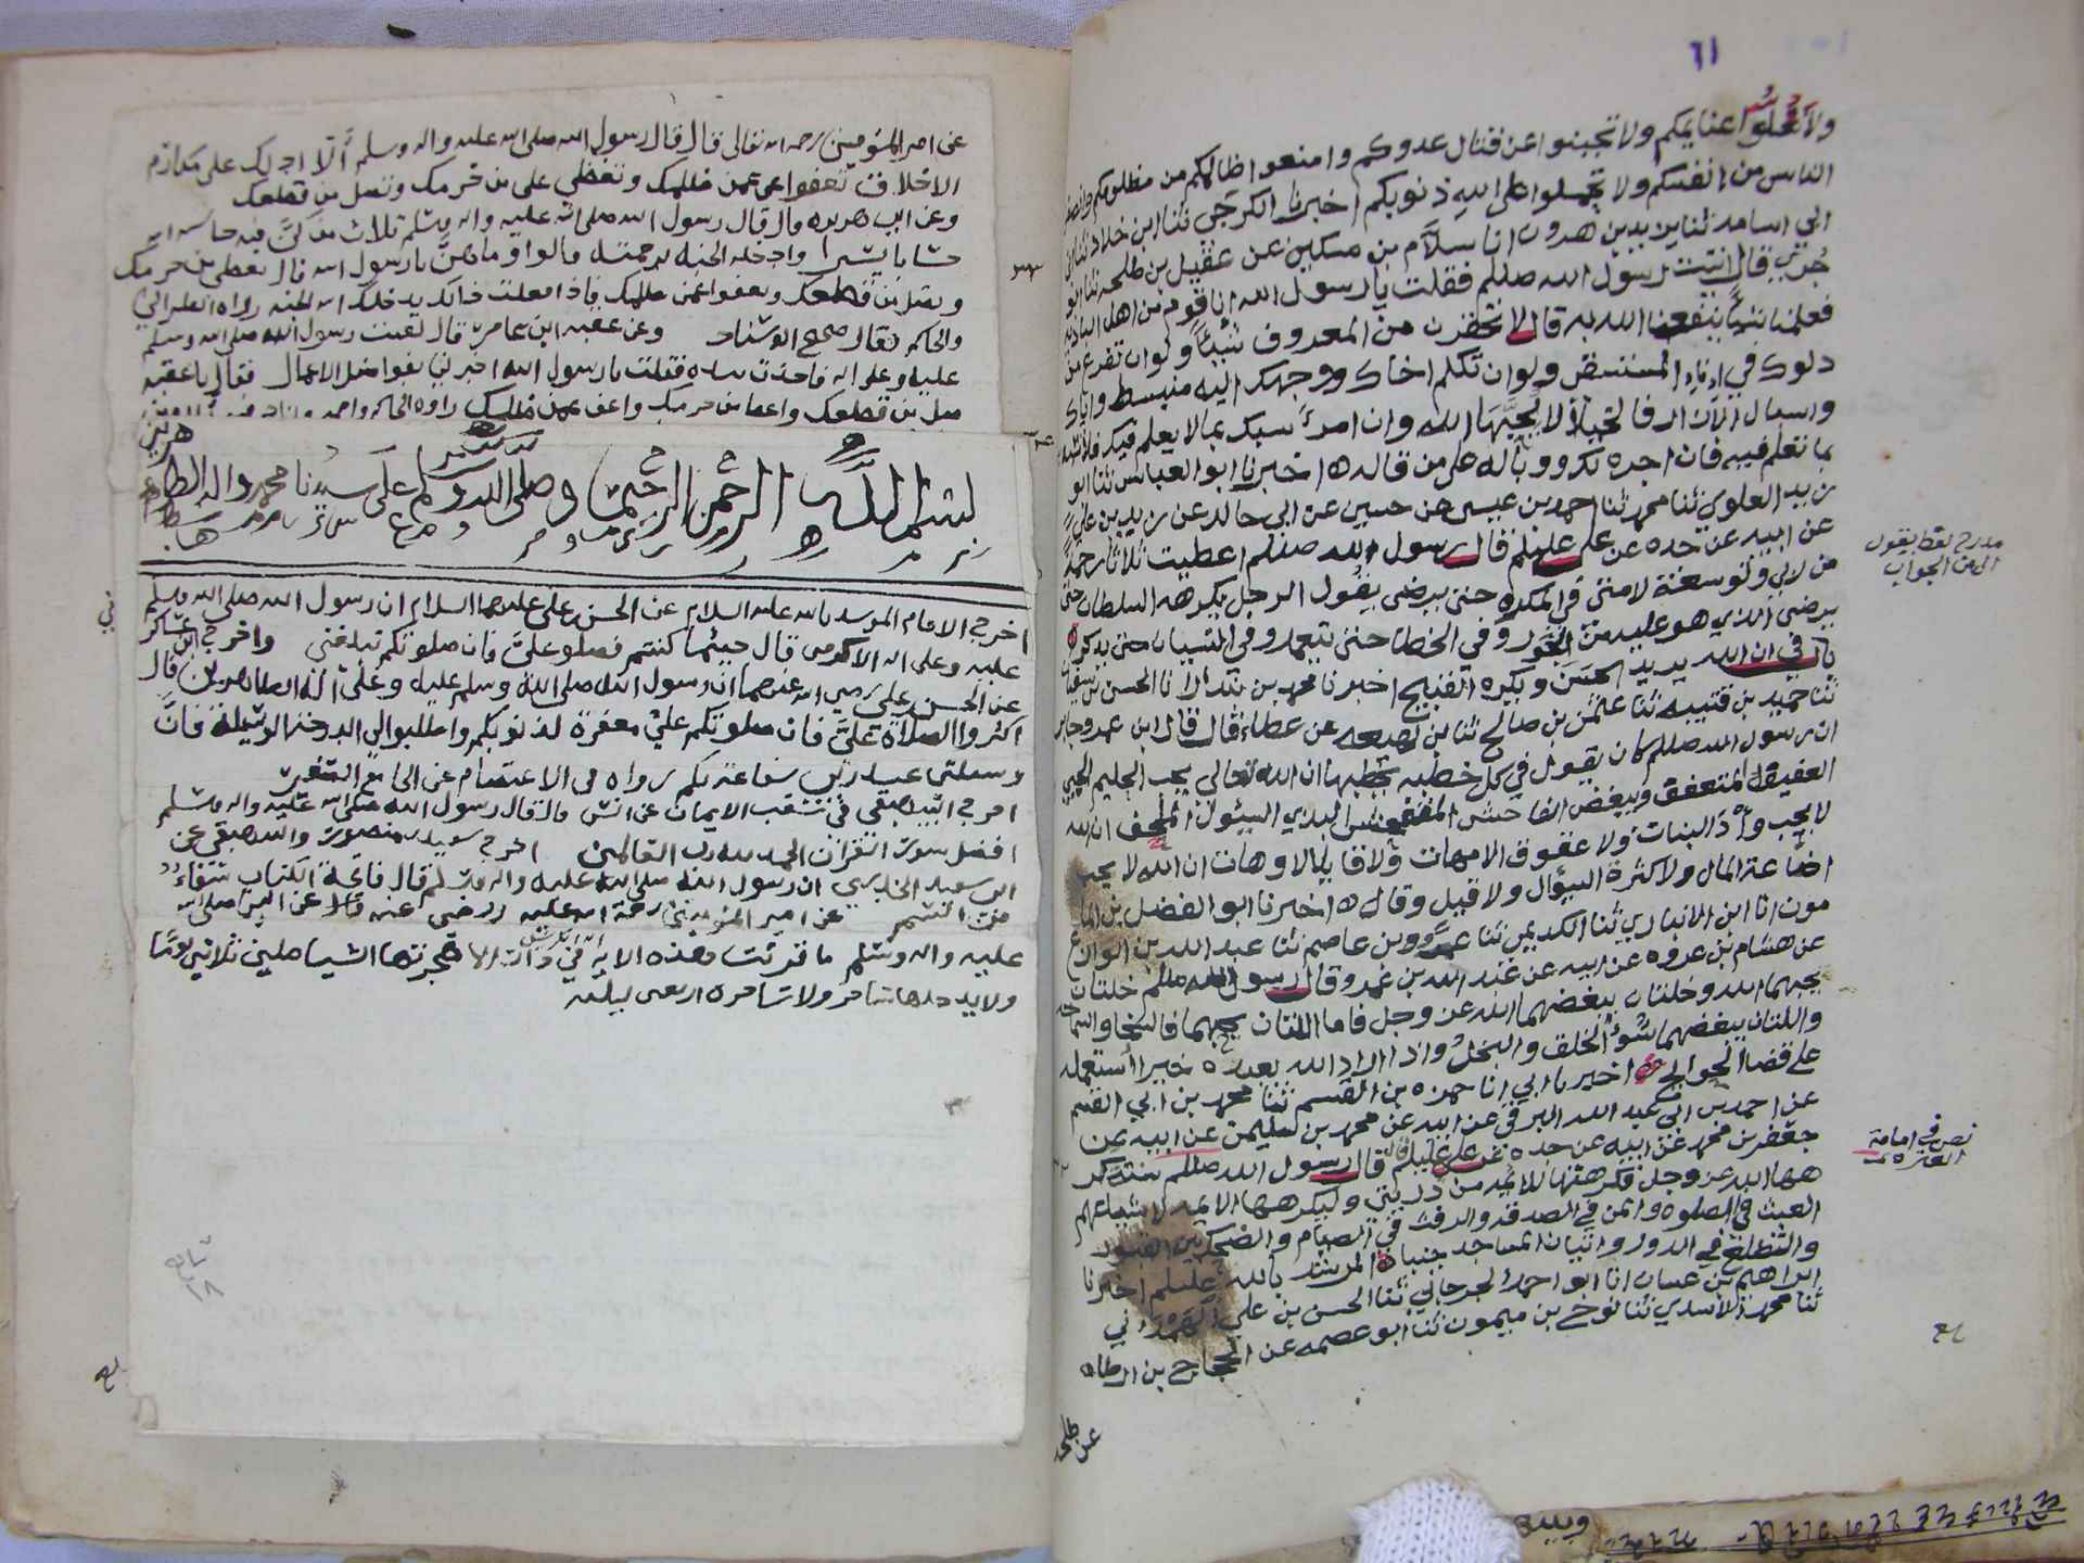 ٦١
ولا تغلوا غنايمكم ولا تجبنوا عن قتال عدوكم وامنعوا ظالمكم من مظلومكم وانصفوا
الناس من انفسكم ولا تحملوا على الله ذنوبكم اخبرنا الكرجي ثنا ابن خلاد ثنا ابن
ابي اسامه ثنا يزيد بن هرون انا سلام بن مسكين عن عقيل بن طلحه ثنا ابو
جري قال اتيت رسول الله صللم فقلت يا رسول الله انا قوم من اهل الباديه
فعلمنا شيئاً ينفعنا الله به قال لا تحقرن من المعروف شيئاً ولو ان تفرغ من
دلوك في اناء المستسقي ولو ان تكلم اخاك ووجهك اليه منبسط واياك
واسبال الازار فالخيلاء لا يحبها الله وان امرء سبك بما لا يعلم فيك فلا تسبه
بما تعلم فيه فان اجره لك ووباله على من قاله ه اخبرنا ابو العباس ثنا ابو
زيد العلوي ثنا محمد ثنا احمد بن عيسى عن حسين عن ابي خالد عن زيد بن علي
عن ابيه عن جده عن علي عليلم قال رسول الله صللم اعطيت ثلاثا رحمة
من ربي وتوسعة لامتي في المكره حتى يرضى يقول الرجل يكرهه السلطان حتى
يرضى الذي هو عليه من الجور وفي الخطا حتى يتعمد وفي النسيان حتى يذكره
باب في ان الله يريد الحسن ويكره القبيح اخبرنا محمد بن بندار انا الحسن بن سفيان
ثنا حميد بن قتيبه ثنا عثمن بن صالح ثنا بن لهيعه عن عطاء قال قال ابن عمر وجابر
ان رسول الله صللم كان يقول في كل خطبه يخطبها ان الله تعالى يحب الحليم الحيي
العفيف المتعفف ويبغض الفاحش البذي السئول الملحف ان الله
لا يحب وأد البنات ولا عقوق الامهات ولا قابلا لا وهات ان الله لا يحب
اضاعة المال ولا كثرة السؤال ولا قيل وقال ه اخبرنا ابو الفضل بن الما
مون انا ابن الانباري ثنا الكديمي ثنا عمرو بن عاصم ثنا عبد الله بن الوازع
عن هشام بن عروه عن ابيه عن عبد الله بن عمرو قال رسول الله صللم خلتان
يحبهما الله وخلتان يبغضهما الله عز وجل فاما اللتان يحبهما فالسخا والسماحه
واللتان يبغضهما سُوء الخلق والبخل واذا اراد الله بعبده خيرا استعمله
على قضا الحوائج ه اخبرنا ابي انا حمزه بن القسم ثنا محمد بن ابي القسم
عن احمد بن ابي عبد الله البرقي عن ابيه عن محمد بن سليمن عن ابيه عن
جعفر بن محمد عن ابيه عن جده عن علي عليلم قال قال رسول الله صللم ستة كر
هها الله عز وجل فكرهتها للائمه من ذريتي وليكرهها الائمه لاتباعهم
العبث في الصلوه والمن في الصدقه والرفث في الصيام والضحك بين القبور
والتطلع في الدور واتيان المساجد جنبا ه المرشد بالله عليلم اخبرنا
ابراهيم بن غسان انا ابو احمد الجرجاني ثنا الحسن بن علي الهرواني
ثنا محمد الاسدي ثنا نوح بن ميمون ثنا ابو عصمه عن الحجاج بن ارطاه
عن طلحه
مدرج لفظ يقول
الى من الجواب
نص في امامة
العتره
عن امير المؤمنين رحمه الله تعالى قال قال رسول الله صلى الله عليه واله وسلم ألا ادلك على مكارم
الاخلاق تعفوا عمن ظلمك وتعطي من حرمك وتصل من قطعك
وعن ابي هريره قال قال رسول الله صلى الله عليه واله وسلم ثلاث من كنّ فيه حاسبه الله
حسابا يسيرا وادخله الجنه برحمته قالوا وما هن يا رسول الله قال تعطي من حرمك
وتصل من قطعك وتعفوا عمن ظلمك فاذا فعلت ذلك يدخلك الله الجنه رواه الطبراني
والحاكم وقال صحيح الاسناد وعن عقبه ابن عامر قال لقيت رسول الله صلى الله وسلم
عليه وعلى اله فاخذت بيده فقلت يا رسول الله اخبرني بفواضل الاعمال فقال يا عقبه
صل من قطعك واعط من حرمك واعف عمن ظلمك رواه الحاكم واحمد
بسم الله الرحمن الرحيم وصلى الله وسلم على سيدنا محمد واله الطاهرين
اخرج الامام المويد بالله عليه السلام عن الحسن بن علي عليهما السلام ان رسول الله صلى الله وسلم
عليه وعلى اله الاكرمين قال حيثما كنتم فصلو عليّ فان صلوتكم تبلغني واخرج ابن عساكر
عن الحسن بن علي رضي الله عنهما ان رسول الله صلى الله وسلم عليه وعلى اله الطاهرين قال
اكثروا الصلاة عليّ فان صلوتكم عليّ مغفرة لذنوبكم واطلبوا لي الدرجة الوسيلة فانّ
وسيلتي عند ربي شفاعة لكم رواه في الاعتصام عن الجامع الصغير
اخرج البيهقي في شعب الايمان عن انس قال قال رسول الله صلى الله عليه واله وسلم
افضل سور القرآن الحمد لله رب العالمين اخرج سعيد بن منصور والبيهقي عن
ابي سعيد الخدري ان رسول الله صلى الله عليه واله وسلم قال فاتحة الكتاب شفاء
من السم عن امير المؤمنين رحمة الله عليه ورضي عنه قال عن النبي صلى الله
عليه واله وسلم ما قرئت هذه الايه اية الكرسي في دار الا هجرتها الشياطين ثلاثين يومًا
ولا يدخلها ساحر ولا ساحره اربعين ليله